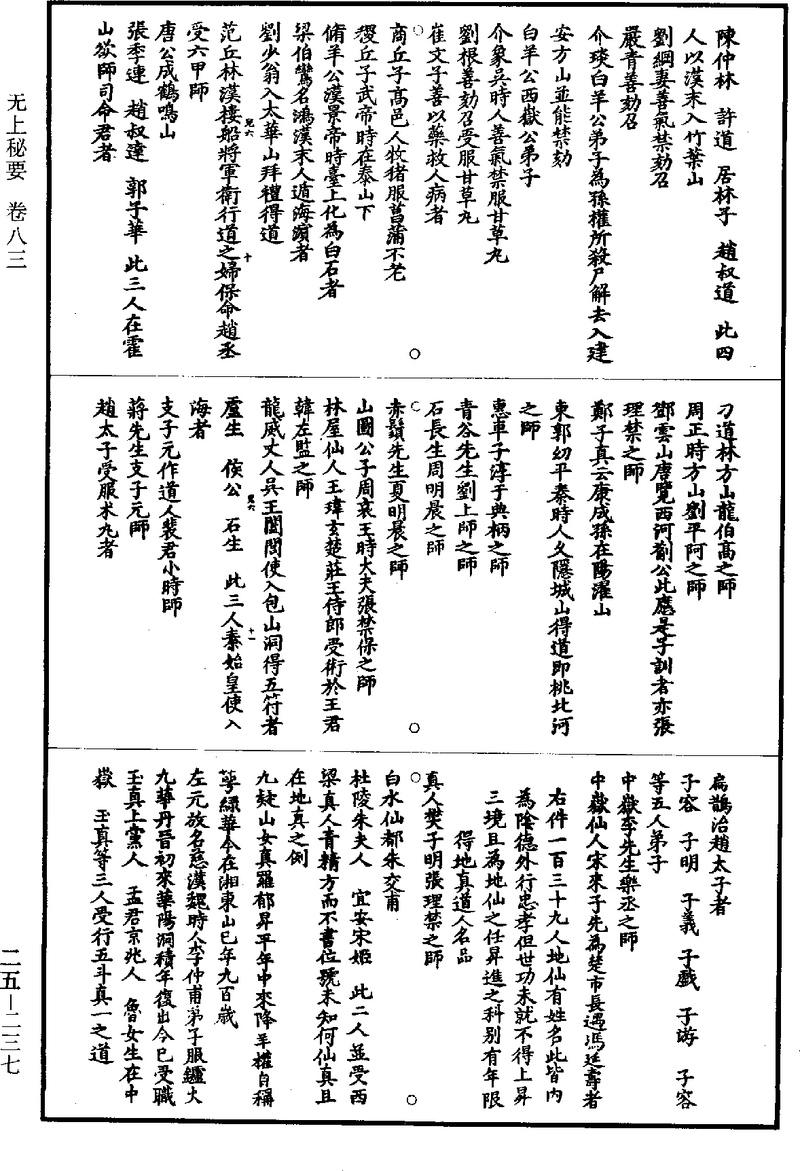 陳仲林　許道　居林子　趙叔道　此四
人以漢末入竹葉山
劉綱妻善氣禁劾召
嚴青善劾召
介琰白羊公弟子為孫權所殺尸解去入建
安方山並能禁劾
白羊公西嶽公弟子
介象吳時人善氣禁服甘草丸
劉根善劾召受服甘草丸
崔文子善以藥救人病者
商丘子高邑人牧猪服菖蒲不老
稷丘子武帝時在泰山下
脩羊公漢景帝時臺上化為白石者
梁伯鸞名鴻漢末人遁海濱者
劉少翁入太華山拜禮得道
范丘林漢樓船將軍衛行道之婦保命趙丞
受六甲師
唐公成鶴鳴山
張季連　趙叔達　郭子華　此三人在霍
山欲師司命君者
刁道林方山龍伯高之師
周正時方山劉平阿之師
鄧雲山唐覽西河薊公此應是子訓者亦張
理禁之師
鄭子真云康成孫在陽濯山
東郭幼平秦時人久隱城山得道即桃北河
之師
惠車子淳于典柄之師
青谷先生劉上師之師
石長生周明晨之師
赤鬚先生夏明晨之師
山圖公子周哀王時大夫張禁保之師
林屋仙人王瑋玄楚莊王侍郎受術於王君
韓左監之師
龍威丈人吳王闔閭使入包山洞得五符者
盧生　侯公　石生　此三人秦始皇使入
海者
支子元作道人裴君小時師
蔣先生支子元師
趙太子受服朮丸者
扁鵲治趙太子者
子容　子明　子義　子戲　子游　子容
等五人弟子
中嶽李先生樂丞之師
中嶽仙人宋來子先為楚市長遇馮延壽者
右件一百三十九人地仙有姓名此皆內
為陰德外行忠孝但世功未就不得上昇
三境且為地仙之任昇進之科別有年限
得地真道人名品
真人樊子明張理禁之師
白水仙都朱交甫
杜陵朱夫人　宜安宋姬　此二人並受西
梁真人青精方而不書位號未知何仙真且
在地真之例
九疑山女真羅郁昇平年中來降羊權自稱
萼綠華今在湘東山已年九百歲
左元放名慈漢魏時人李仲甫弟子服鑪火
九華丹晉初來華陽洞積年復出今已受職
玉真上黨人　孟君京兆人　魯女生在中
嶽　玉真等三人受行五斗真一之道
无上秘要　卷八三
二五—二三七